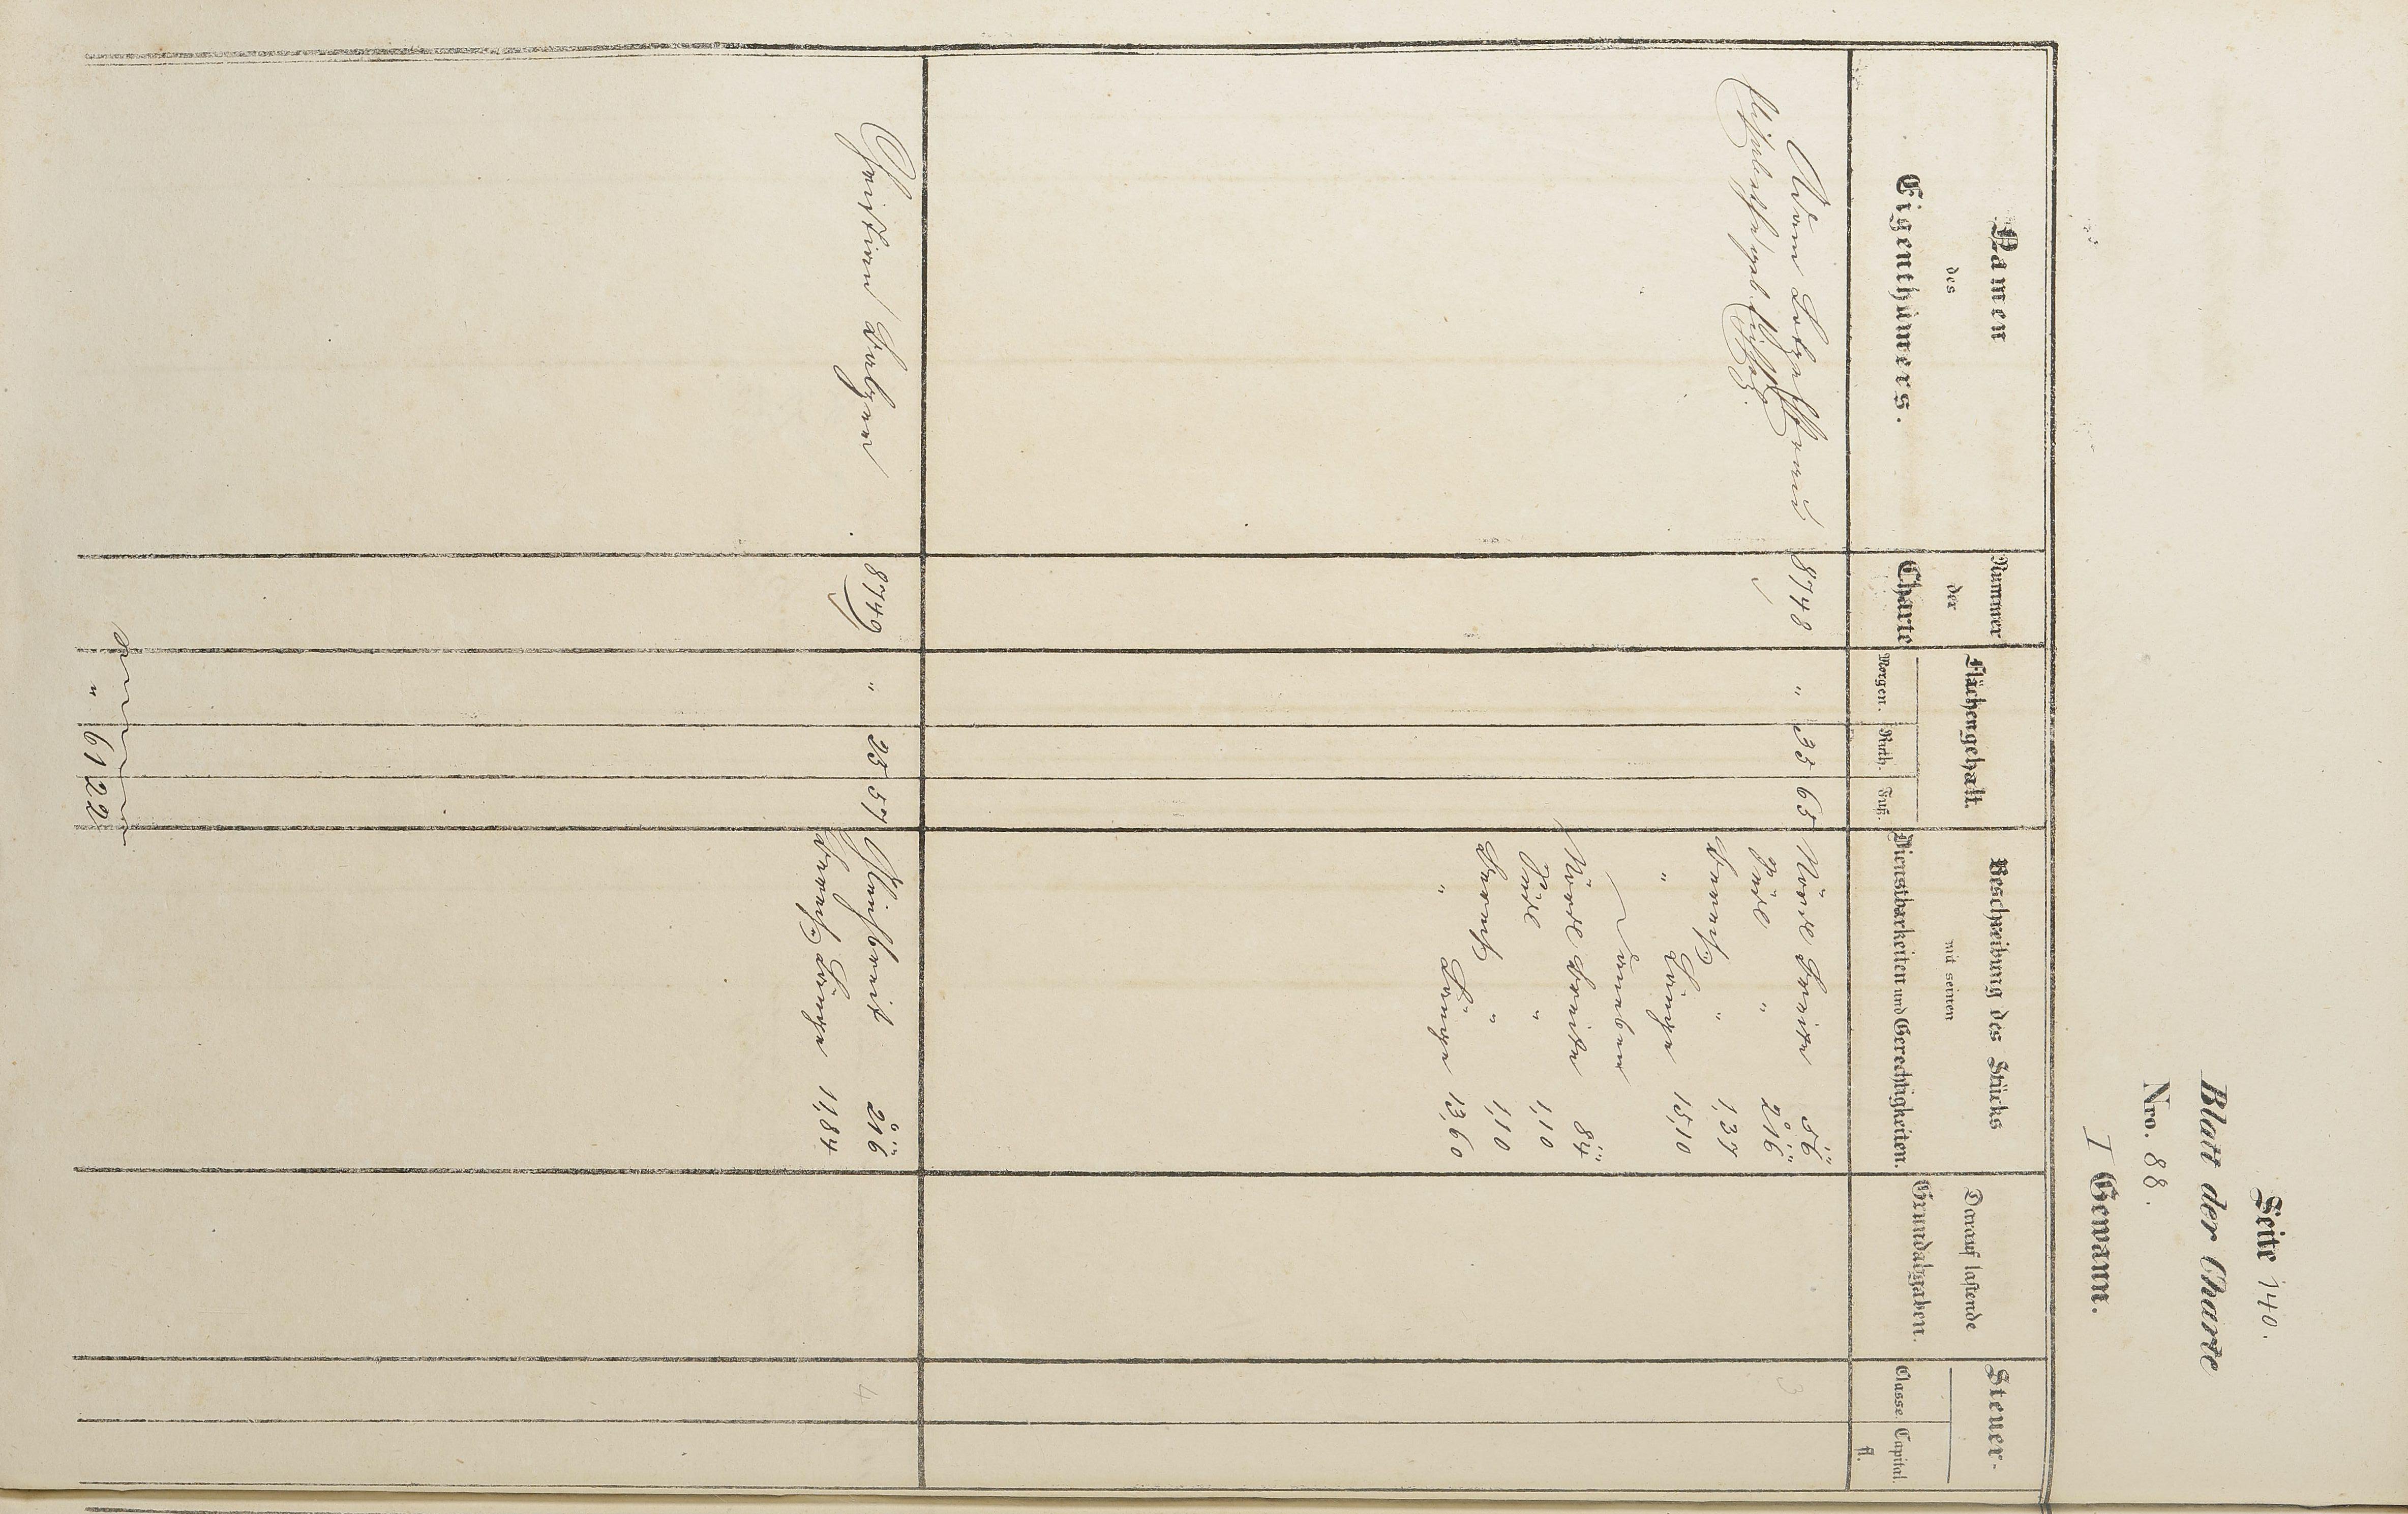 Seite 140.
Blatt der Charte
Nro. 88.
I Gewann.
Namen
des
Eigenthümers.
Nummer
der
Charte
Flächengehalt.
Morgen. Ruth. Fuß.
Beschreibung des Stücks
mit seinen
Dienstbarkeiten und Gerechtigkeiten.
Darauf lastende
Grundabgaben.
Steuer-
Classe. Capital.
fl.
Adam 8748 " 35 65 Nördl Breite 56
Südl " 216
" 1,37
" Länge 15,10
daneben
Nördl Breite 84
Südl " 1,10
" 1,10
" Länge 13,60
Christian Balzer 8749 " 25 57 216 4
Länge 11,84
" 61 22